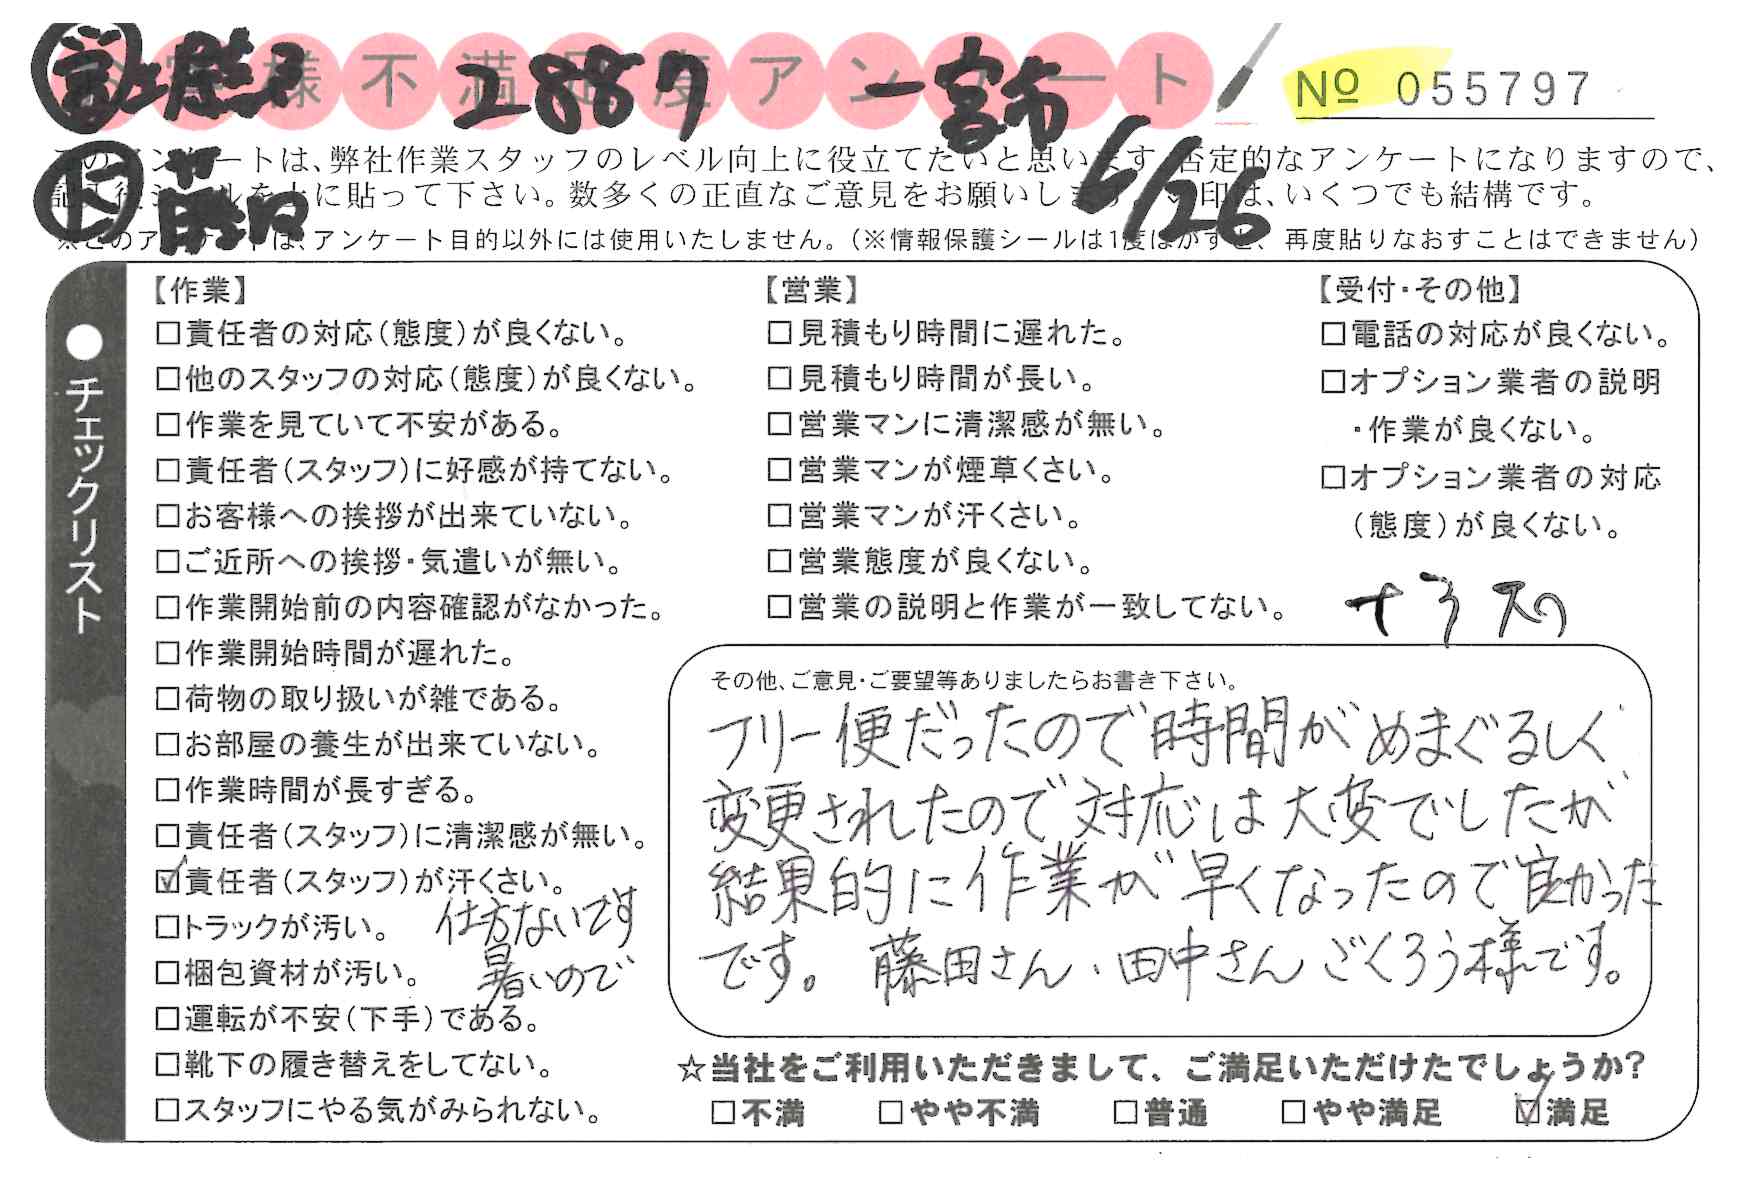 お客様不満足度アンケート
2887 一宮市
№ 055797
6/26
このアンケートは、弊社作業スタッフのレベル向上に役立てたいと思います。否定的なアンケートになりますので、
記入後シールを上に貼って下さい。数多くの正直なご意見をお願いします。✓印は、いくつでも結構です。
※このアンケートは、アンケート目的以外には使用いたしません。(※情報保護シールは1度はがすと、再度貼りなおすことはできません)
●チェックリスト
【作業】
□責任者の対応(態度)が良くない。
□他のスタッフの対応(態度)が良くない。
□作業を見ていて不安がある。
□責任者(スタッフ)に好感が持てない。
□お客様への挨拶が出来ていない。
□ご近所への挨拶・気遣いが無い。
□作業開始前の内容確認がなかった。
□作業開始時間が遅れた。
□荷物の取り扱いが雑である。
□お部屋の養生が出来ていない。
□作業時間が長すぎる。
□責任者(スタッフ)に清潔感が無い。
☑責任者(スタッフ)が汗くさい。
□トラックが汚い。
仕方ないです
□梱包資材が汚い。
暑いので
□運転が不安(下手)である。
□靴下の履き替えをしてない。
□スタッフにやる気がみられない。
【営業】
□見積もり時間に遅れた。
□見積もり時間が長い。
□営業マンに清潔感が無い。
□営業マンが煙草くさい。
□営業マンが汗くさい。
□営業態度が良くない。
□営業の説明と作業が一致してない。
【受付・その他】
□電話の対応が良くない。
□オプション業者の説明
・作業が良くない。
□オプション業者の対応
(態度)が良くない。
その他、ご意見・ご要望等ありましたらお書き下さい。
フリー便だったので時間がめまぐるしく
変更されたので対応は大変でしたが
結果的に作業が早くなったので良かった
です。藤田さん、田中さんごくろう様です。
☆当社をご利用いただきまして、ご満足いただけたでしょうか?
□不満 □やや不満 □普通 □やや満足 ☑満足